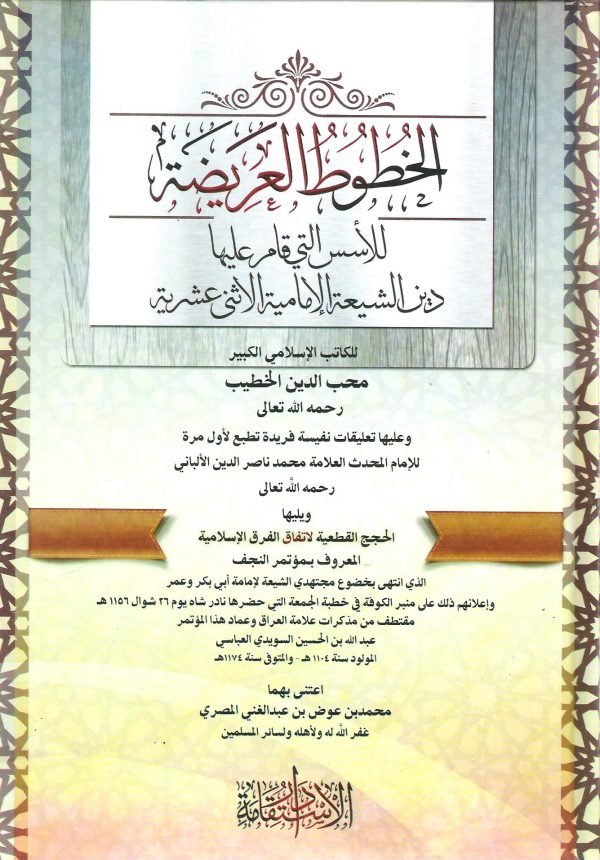 الخُطُوطُ العَرِيضَة
للأسس التي قام عليها
دين الشيعة الإمامية الاثنى عشرية
للكاتب الإسلامي الكبير
محب الدين الخطيب
رحمه الله تعالى
وعليها تعليقات نفيسة فريدة تطبع لأول مرة
للإمام المحدث العلامة محمد ناصر الدين الألباني
رحمه الله تعالى
ويليها
الحجج القطعية لاتفاق الفرق الإسلامية
المعروف بمؤتمر النجف
الذي انتهى بخضوع مجتهدي الشيعة لإمامة أبي بكر وعمر
وإعلانهم ذلك على منبر الكوفة في خطبة الجمعة التي حضرها نادر شاه يوم ٢٦ شوال ١١٥٦ هـ
مقتطف من مذكرات علامة العراق وعماد هذا المؤتمر
عبد الله بن الحسين السويدي العباسي
المولود سنة ١١٠٤ هـ - والمتوفى سنة ١١٧٤هـ
اعتنى بهما
محمد بن عوض بن عبدالغني المصري
غفر الله له ولأهله ولسائر المسلمين
دار الاستقامة